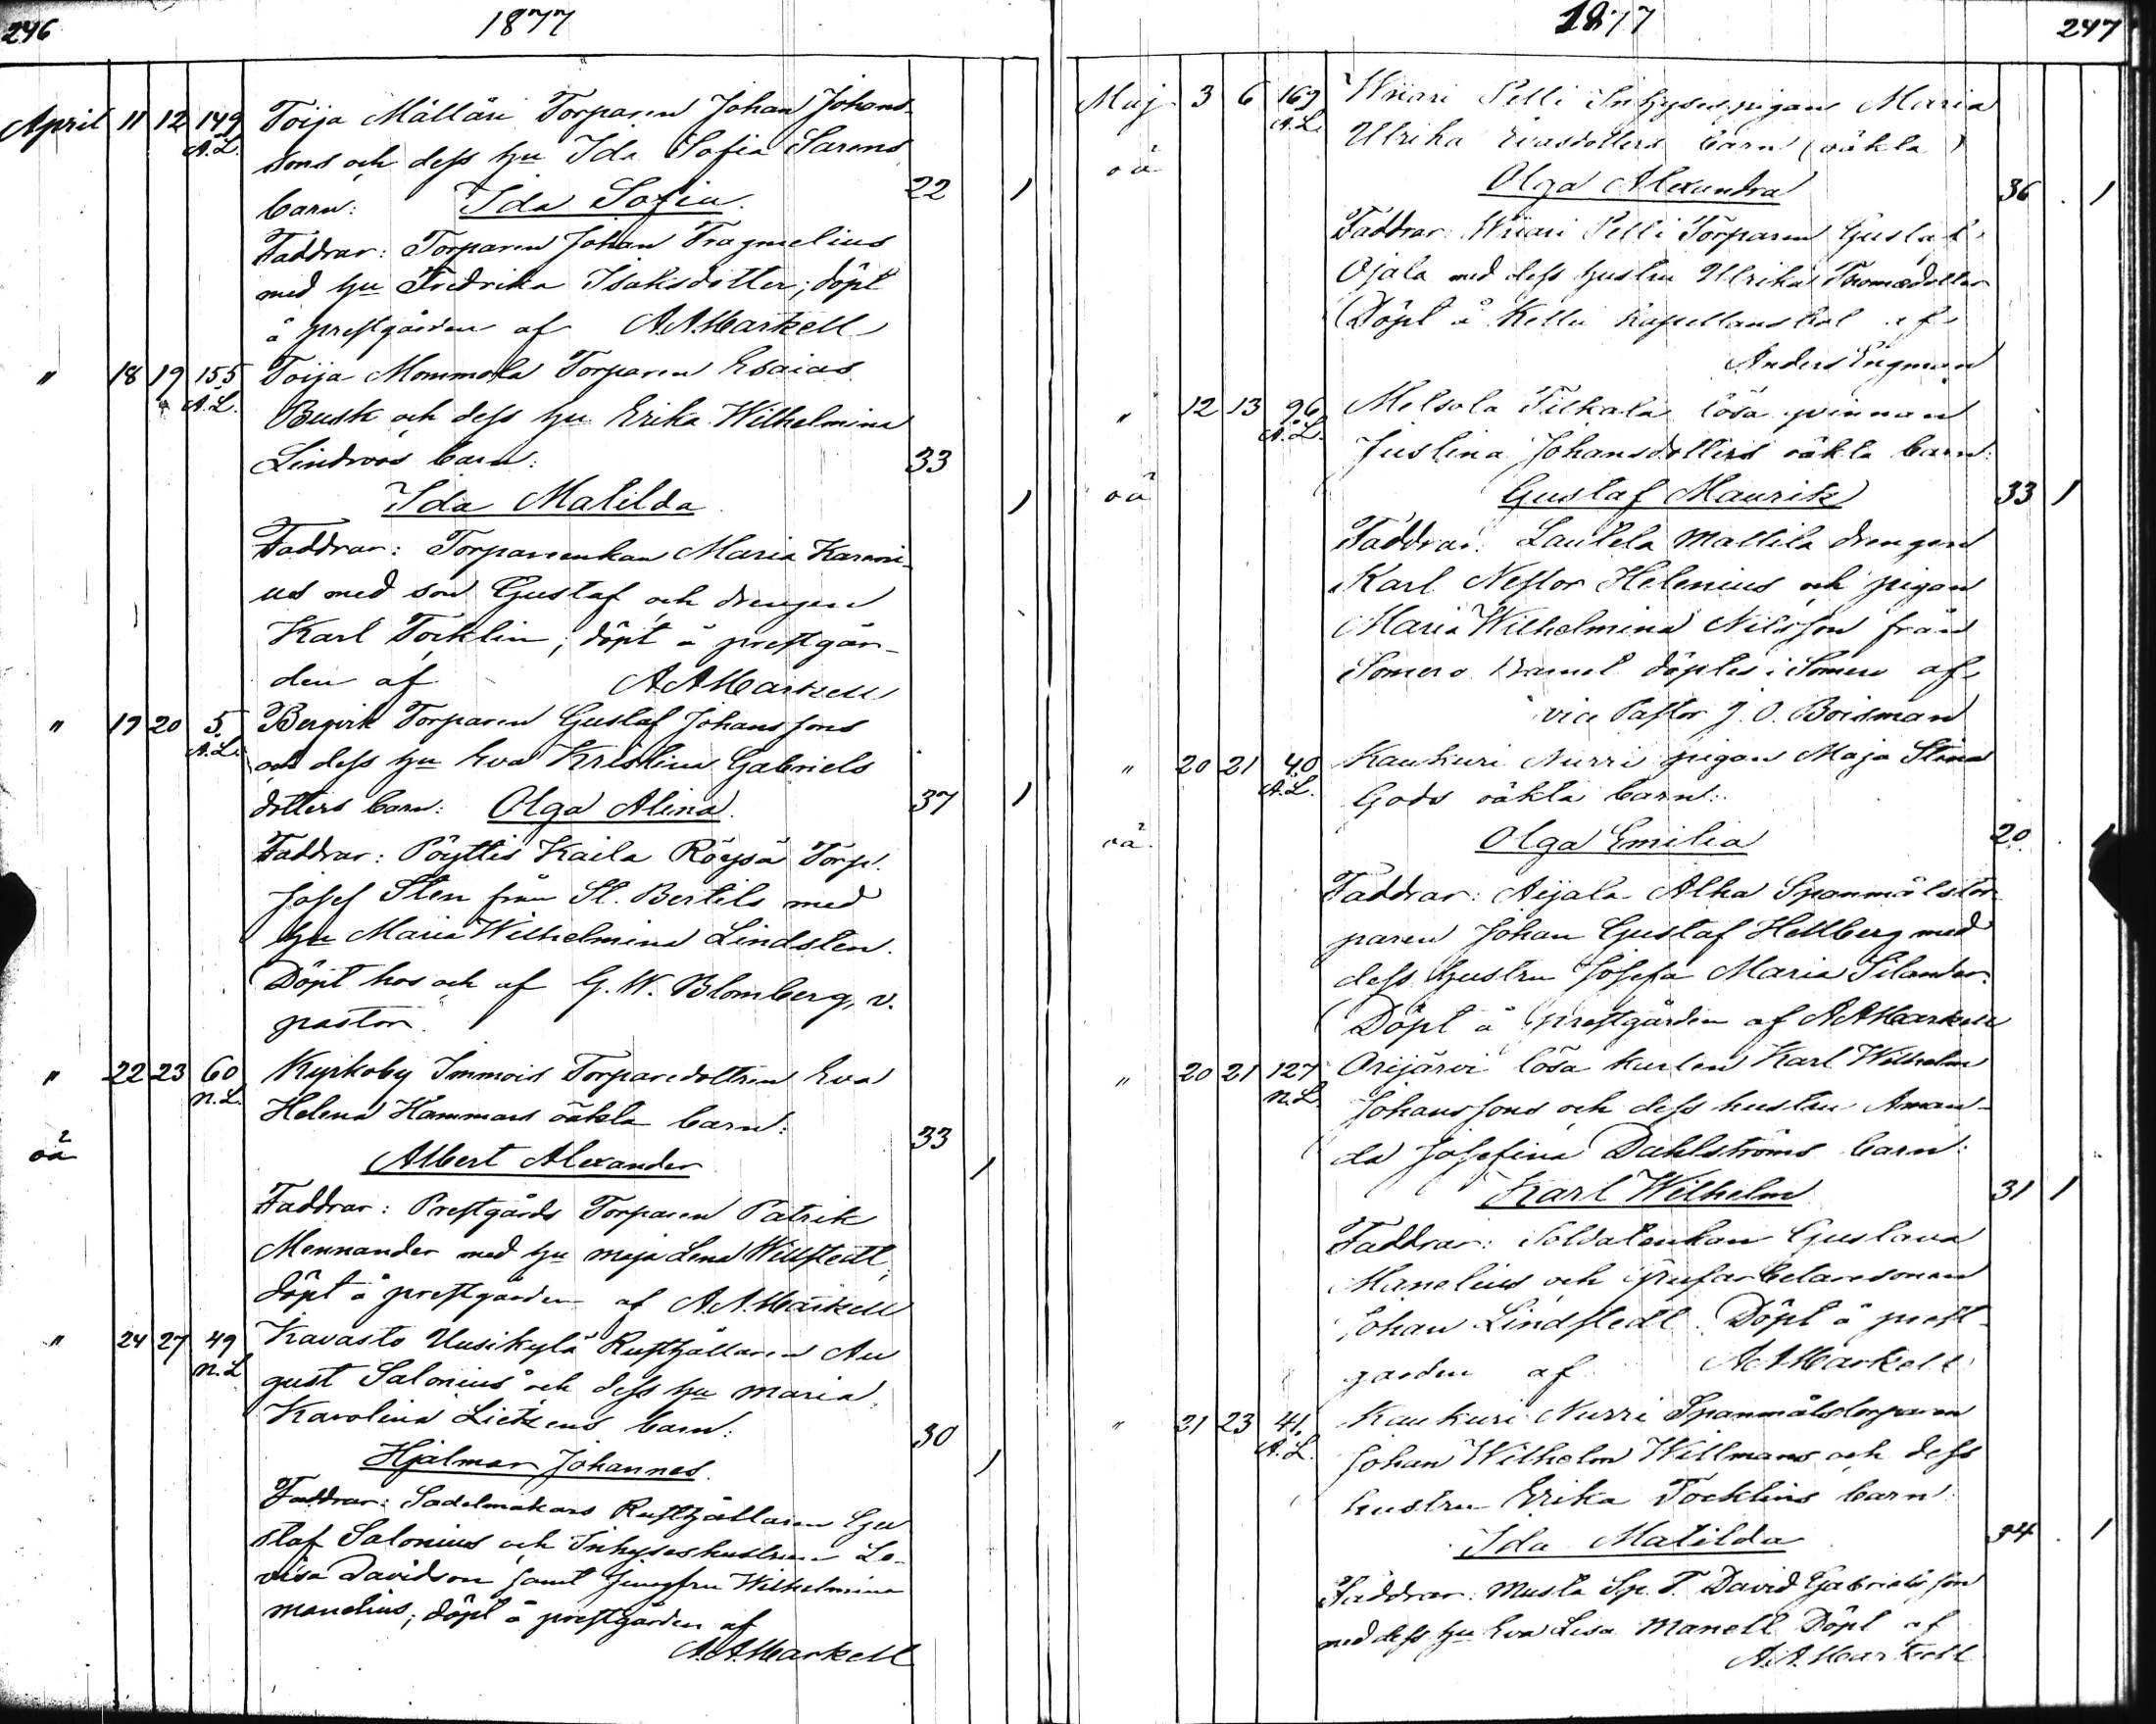 246
1877
April 11 12 149 Toija Mälläri Torparen Johan Johans-
A.L. sons och dess hu Ida Sofia Sarens
barn: Ida Sofia. 22 1
Faddrar: Torparen Johan Tragmelius
med hu Fredrika Isaksdotter; döpt
å prestgården af A.A.Markell
" 18 19 155 Toija Mommola Torparen Esaias
A.L. Busk och dess hu Erika Wilhelmina
Lindroos barn: 33
Ida Matilda 1
Faddrar: Torpareenkan Maria Karmi-
us med son Gustaf och drengen
Karl Tocklin; döpt å prestgår-
den af AAMarkell
" 17 20 5. Bergvik Torparen Gustaf Johanssons
A.L. och dess hu Eva Kristina Gabriels
dotters barn: Olga Alina. 37 1
Faddrar: Pöyttis Kaila Röysä Torp.
Josef Sten från St. Bertils med
hu Maria Wilhelmina Lindsten.
Döpt hos och af G. W. Blomberg, v.
pastor.
" 22 23 60 Kyrkoby Immois Torparedottren Eva
N.L. Helena Hammars oäkta barn: 33
oä
Albert Alexander 1
Faddrar: Prestgårds Torparen Patrik
Mennander med hu Maja Lena Willstedt,
döpt å prestgården af A.A.Markell
" 24 27 49 Kavasto Uusikylä Rusthållaren Au
N.L gust Salonius och dess hu Maria
Karolina Lietzens barn: 30
Hjalmar Johannes. 1
Faddrar: Sadelmakars Rusthållaren Gu
staf Salonius och Inhyseshustrun Lo-
visa Davidson samt Jungfru Wilhelmina
Manelius; döpt å prestgården af
A.A.Markell
1877
247
Maj 3 6 169 Wiiari Pelli Inhysespigans Maria
A.L. Ulrika Evasdotters barn (oäkta)
oä
Olga Alexandra 36 1
Faddrar: Wiiari Pelli Torparen Gustaf
Ojala med dess hustru Ulrika Thomædotter
Döpt å Kellu Kapellansbol af
Anders Engman
" 12 13 96 Melsola Tilkala lösa qvinnan
A.L. Justina Johansdotters oäkta barn:
oä Gustaf Maurik 33 1
Faddrar: Lautela Mattila drengen
Karl Nestor Helenius och pigan
Maria Wilhelmina Nilsson från
Somero. Barnet döptes i Somero af
vice Pastor J. O. Boisman
" 20 21 40 Kaukuri Nurri pigan Maja Stina
A.L. Gods oäkta barn:
oä. Olga Emilia 20. 1
Faddrar: Aijala Alha Spanmålstor
paren Johan Gustaf Hellberg med
dess hustru Josefa Maria Silander.
Döpt å prestgården af AAMarkell
" 20 21 127 Orijärvi lösa karlen Karl Wilhelm
N.L. Johanssons och dess hustru Aman-
da Josefina Dahlströms barn:
Karl Wilhelm 31 1
Faddrar: Soldatenkan Gustava
Manelius och grufarbetaresonen
Johan Lindstedt. Döpt å prest-
gården af AAMarkell
" 21 23 41. Kaukuri Nurri Spanmålstorparen
A.L. Johan Wilhelm Willmans och dess
hustru Erika Tocklins barn:
Ida Matilda 34 1
Faddrar: Musta Sp. T. David Gabrielsson
med dess hu Eva Lisa Manell Döpt af
A.A.Markell